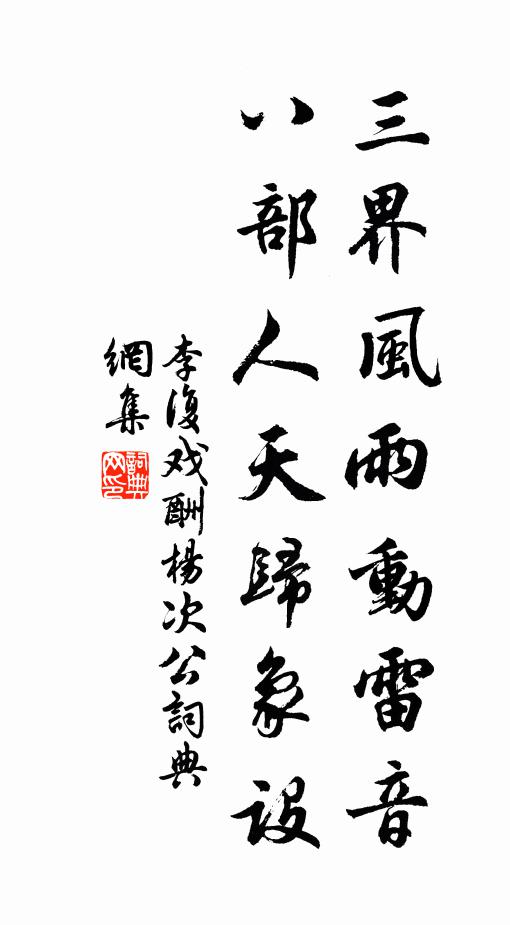 三界風雨動雷音
八部人天歸象設
李復戏酬楊次公詞典
網集
詞典
网印